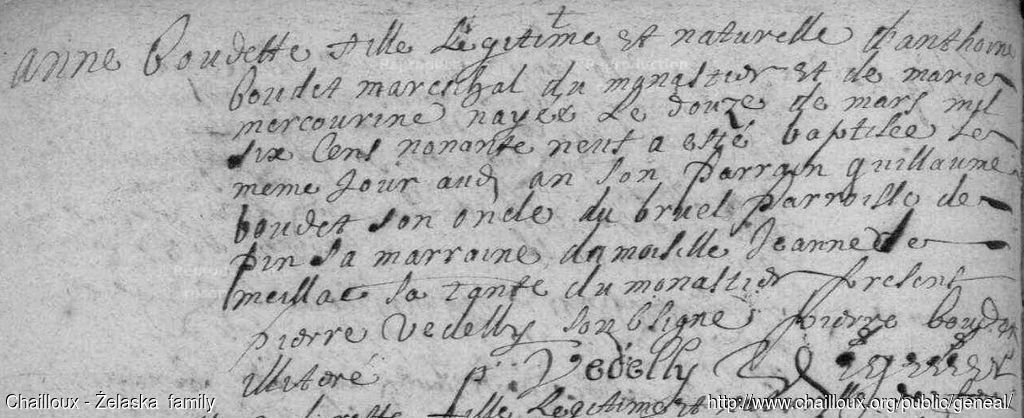 anne boudette fille Legitime et naturelle d'anthoine
boudet mareschal du monastier et de marie
mercourine nayée Le douze de mars mil
six Cens nonante neuf a esté baptisée Le
meme Jour aud an son Parrain guillaume
boudet son oncle du bruel parroisse de
pin sa marraine damoiselle Jeanne de
meillac sa tante du monastier present
pierre Vedelly soubsigne pierre boudet
illiteré Vedelly
fille Legitime et
Chailloux - Żelaska family
http://www.chailloux.org/public/geneal/